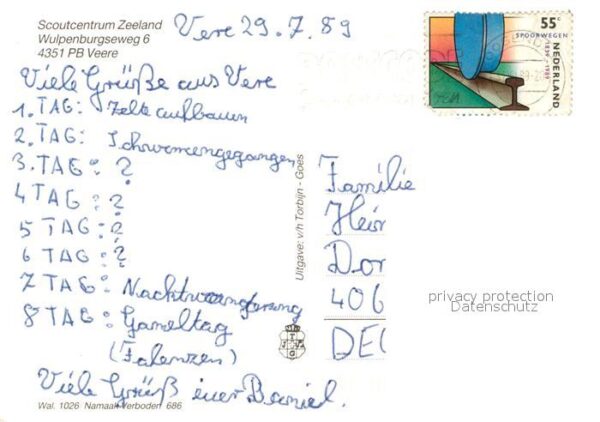 Scoutcentrum Zeeland
Wulpenburgseweg 6
4351 PB Veere
Vere 29.7.89
55c
SPOORWEGEN
1839-1989
NEDERLAND
Viele Grüße aus Vere
1. TAG: Zelte aufbauen
2. TAG: Schwimmengegangen
3. TAG: ?
4 TAG: ?
5 TAG: ?
6 TAG: ?
7 TAG: Nachtwanderung
8 TAG: Gameltag
(Falenzen)
Viele Grüß euer Daniel.
Familie
Heir
Dor
406
DEC
Uitgave: v/h Torbijn - Goes
privacy protection
Datenschutz
Wal. 1026 Namaak Verboden 686